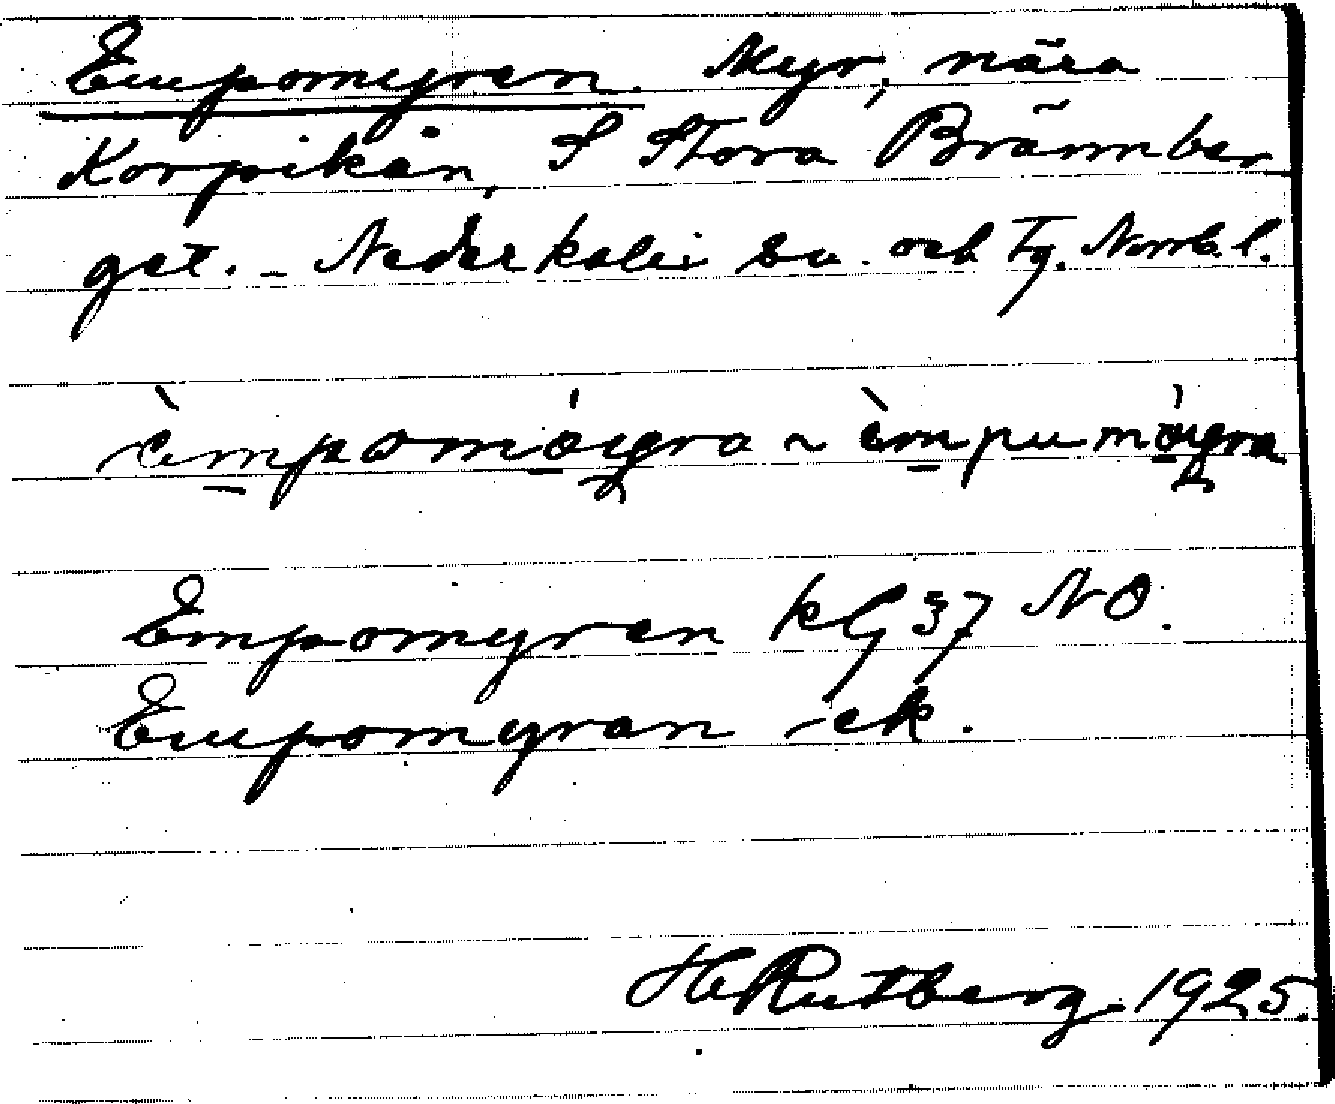 Empomyren. Myr, nära
Korpikån, S Stora Brännber
get. - Nederkalix sn. och tg. Norrb. l.
èmpomóigra ~ èmpumóigra
Empomyren kG 37 NO.
Empomyran ek.
H Rutberg 1925.